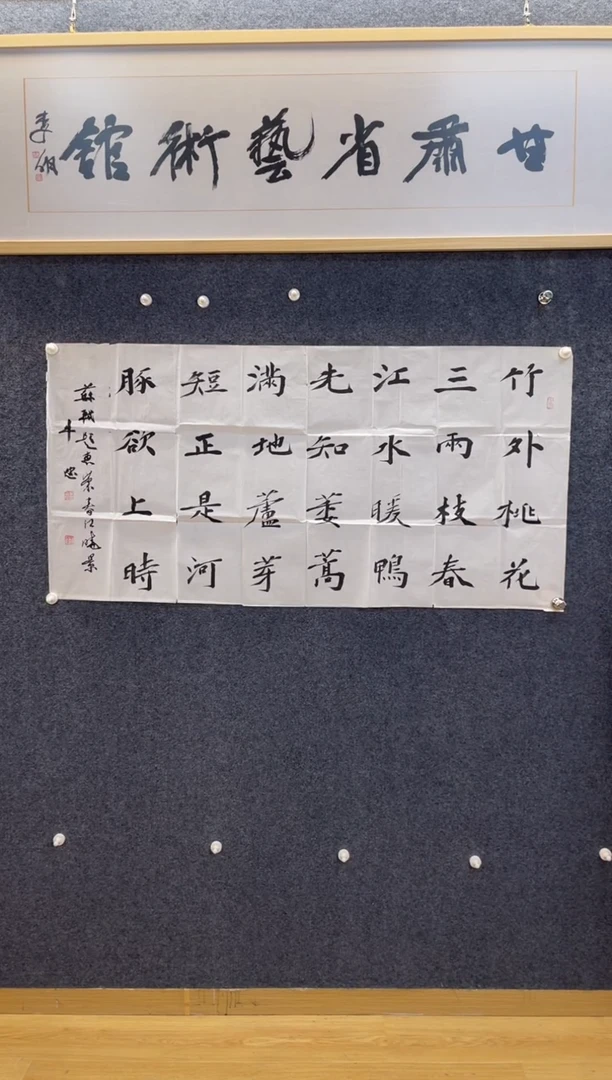 甘肅省藝術館
竹外桃花
三雨枝春
江水暖鴨
先知蒌蒿
满地蘆芽
短正是河
豚欲上時
蘇軾題惠崇春江曉景